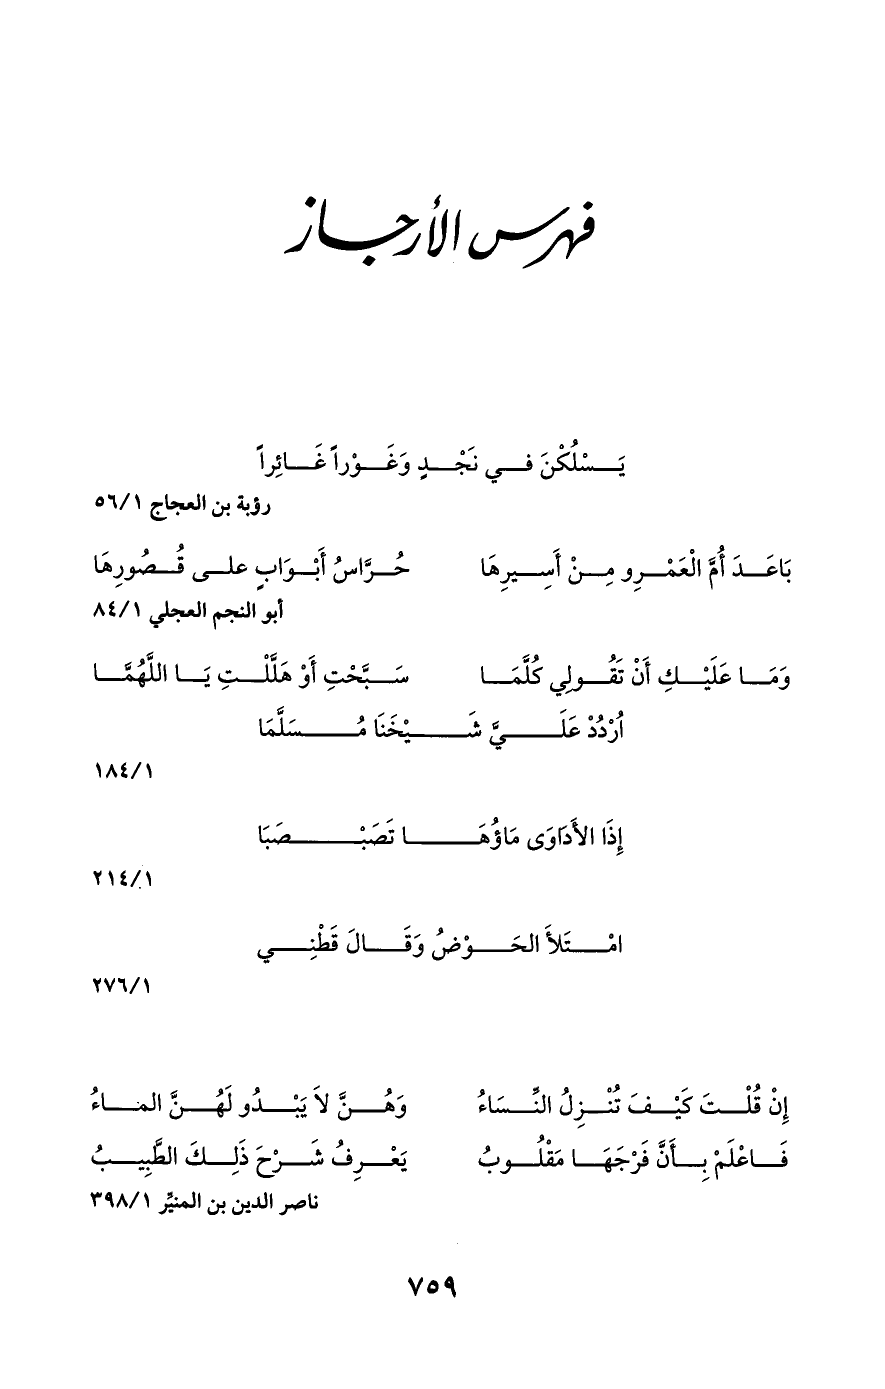 فهرس الأرجاز
يَسْلُكْنَ في نَجْدٍ وَغَوْراً غَائِراً
رؤبة بن العجاج ٥٦/١
بَاعَدَ أُمَّ الْعَمْرِو مِنْ أَسِيرِهَا حُرَّاسُ أَبْوَابٍ على قُصُورِهَا
أبو النجم العجلي ٨٤/١
وَمَا عَلَيْكِ أَنْ تَقُولِي كُلَّمَا سَبَّحْتِ أَوْ هَلَّلْتِ يَا اللَّهُمَّا
اُرْدُدْ عَلَيَّ شَيْخَنَا مُسَلَّمَا
١٨٤/١
إِذَا الأَدَاوَى مَاؤُهَا تَصَبْصَبَا
٢١٤/١
امْتَلأَ الحَوْضُ وَقَالَ قَطْنِي
٢٧٦/١
إِنْ قُلْتَ كَيْفَ تُنْزِلُ النِّسَاءُ وَهُنَّ لاَ يَبْدُو لَهُنَّ الماءُ
فَاعْلَمْ بِأَنَّ فَرْجَهَا مَقْلُوبُ يَعْرِفُ شَرْحَ ذَلِكَ الطَّبِيبُ
ناصر الدين بن المنيِّر ٣٩٨/١
٧٥٩